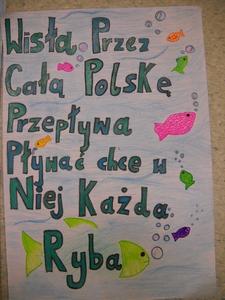 Wisła Przez
Całą Polskę
Przepływa
Pływać chce w
Niej Każda
Ryba